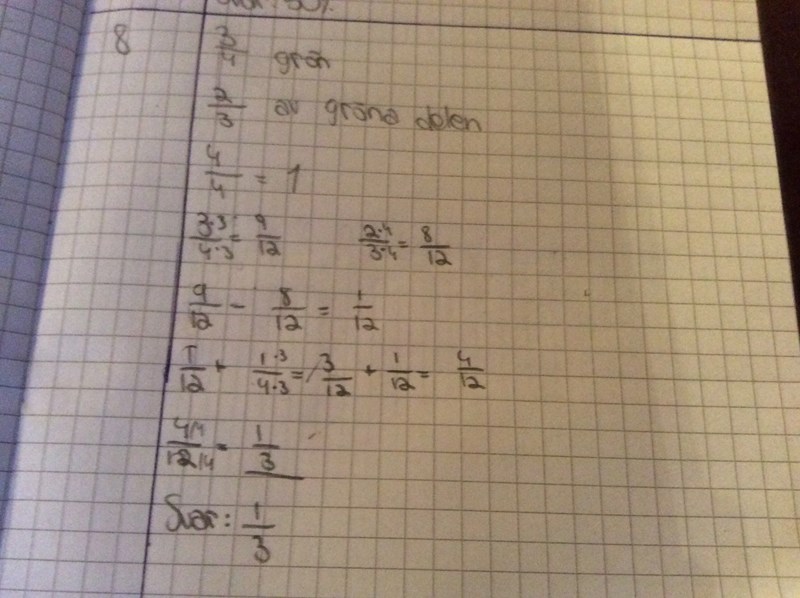 8 3/4 grön
2/3 av gröna delen
4/4 = 1
3·3/4·3 = 9/12 2·4/3·4 = 8/12
9/12 - 8/12 = 1/12
1/12 + 1·3/4·3 = 3/12 + 1/12 = 4/12
4/4/12/4 = 1/3
Svar: 1/3